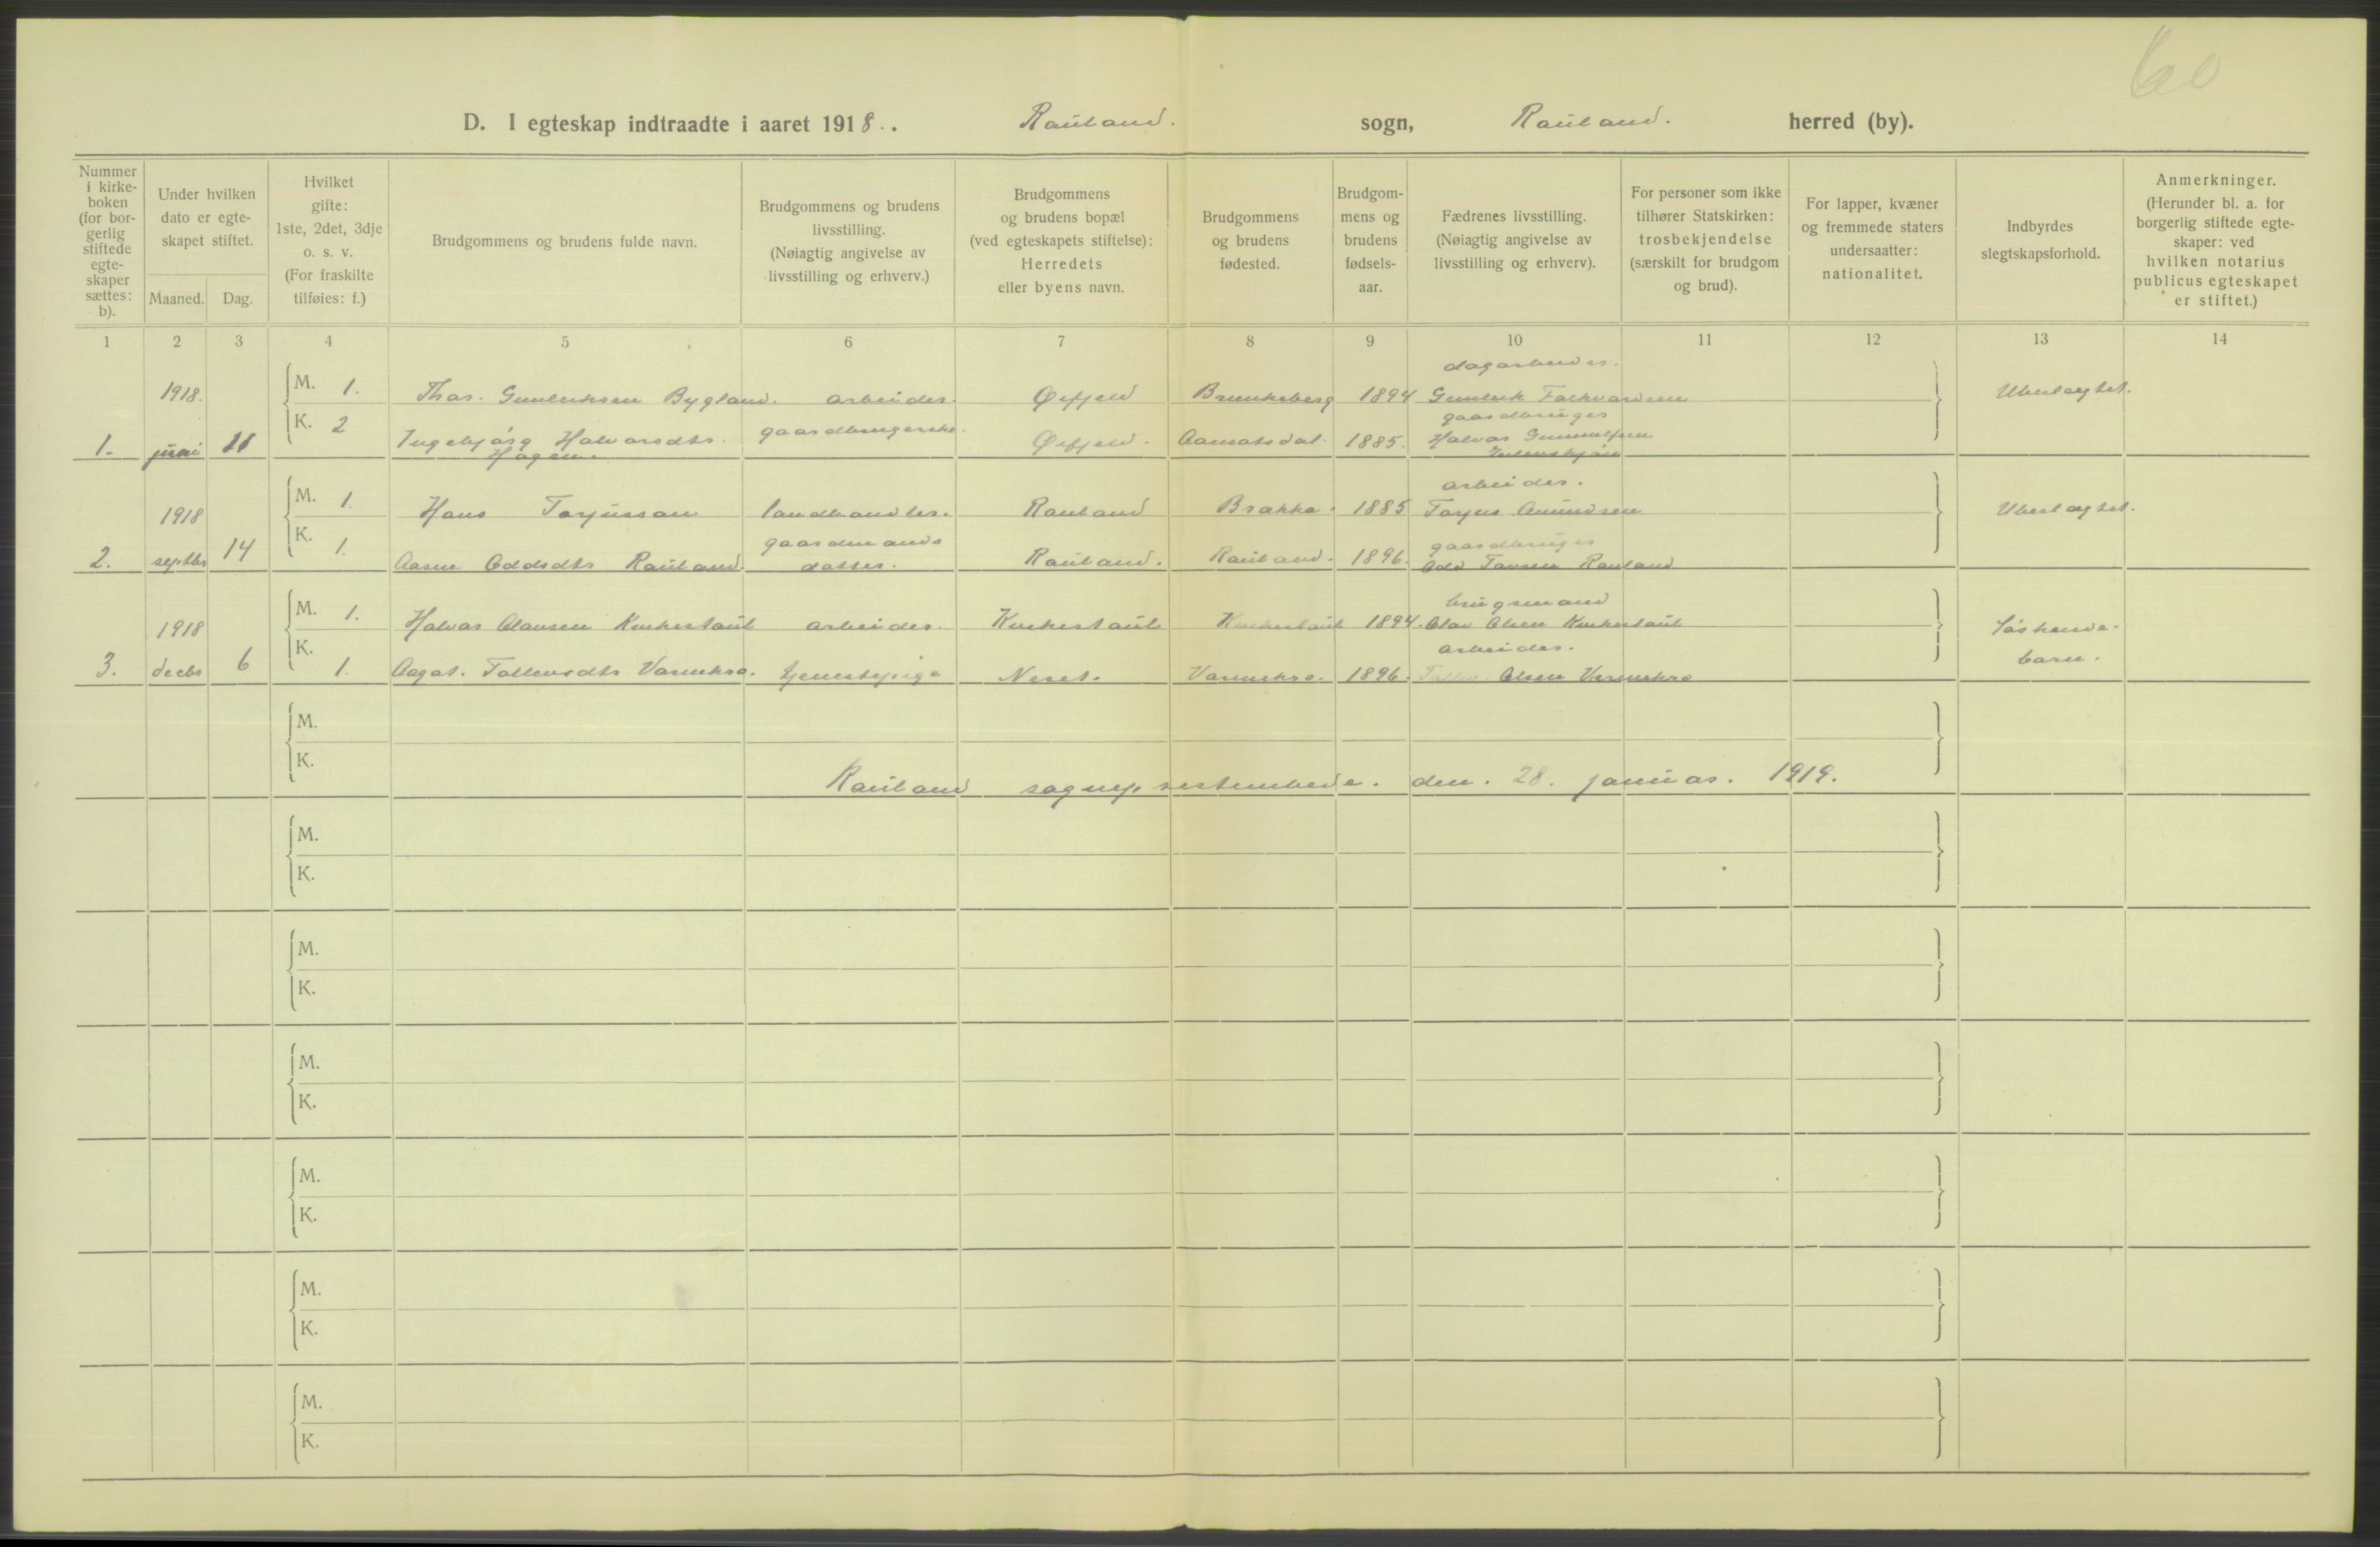 60
D. I egteskap indtraadte i aaret 1918. Rauland. sogn, Rauland. herred (by).
Nummer i kirke- boken (for bor- gerlig stiftede egte- skaper sættes: b).
Under hvilken dato er egte- skapet stiftet.
Maaned. Dag.
Hvilket gifte: 1ste, 2det, 3dje o. s. v. (For fraskilte tilføies: f.)
Brudgommens og brudens fulde navn.
Brudgommens og brudens livsstilling. (Nøiagtig angivelse av livsstilling og erhverv.)
Brudgommens og brudens bopæl (ved egteskapets stiftelse): Herredets eller byens navn.
Brudgommens og brudens fødested.
Brudgom- mens og brudens fødsels- aar.
Fædrenes livsstilling. (Nøiagtig angivelse av livsstilling og erhverv).
For personer som ikke tilhører Statskirken: trosbekjendelse (særskilt for brudgom og brud).
For lapper, kvæner og fremmede staters undersaatter: nationalitet.
Indbyrdes slegtskapsforhold.
Anmerkninger. (Herunder bl. a. for borgerlig stiftede egte- skaper: ved hvilken notarius publicus egteskapet er stiftet.)
1 2 3 4 5 6 7 8 9 10 11 12 13 14
dagarbeider.
1918. M. 1. Thor. Gunleiksen Bygland. arbeider. Øifjeld Brunkeberg 1894 Gunleik Folkvardsen Ubeslegtet.
gaardbruger
1. juni 11 K. 2 Ingebjørg Halvorsdtr. gaardbrugerske. Øifjeld. Aamotsdal. 1885. Halvor
Haagen.
arbeider.
1918 M. 1. Hans Torjussøn landhandler. Rauland Brokke. 1885 Torjus Amundsen Ubeslegtet.
gaardmands gaardbruger
2. septbr 14 K. 1. Aasne Oddsdtr Rauland. datter. Rauland. Rauland. 1896. Odd Rauland
brugsmand
1918 M. 1. Halvor Olavsen Kirkestaul arbeider. Kirkestaul Kirkestaul 1894. Olav Olsen Kirkestaul Søskende-
arbeider. barn.
3. decbr 6 K. 1. Aagot. Tallevsdtr Varmekro. tjenestepige Neset. Varmekro. 1896. Olsen Varmekro
M.
K.
Rauland sogneprestembede. den. 28. januar. 1919.
M.
K.
M.
K.
M.
K.
M.
K.
M.
K.
M.
K.